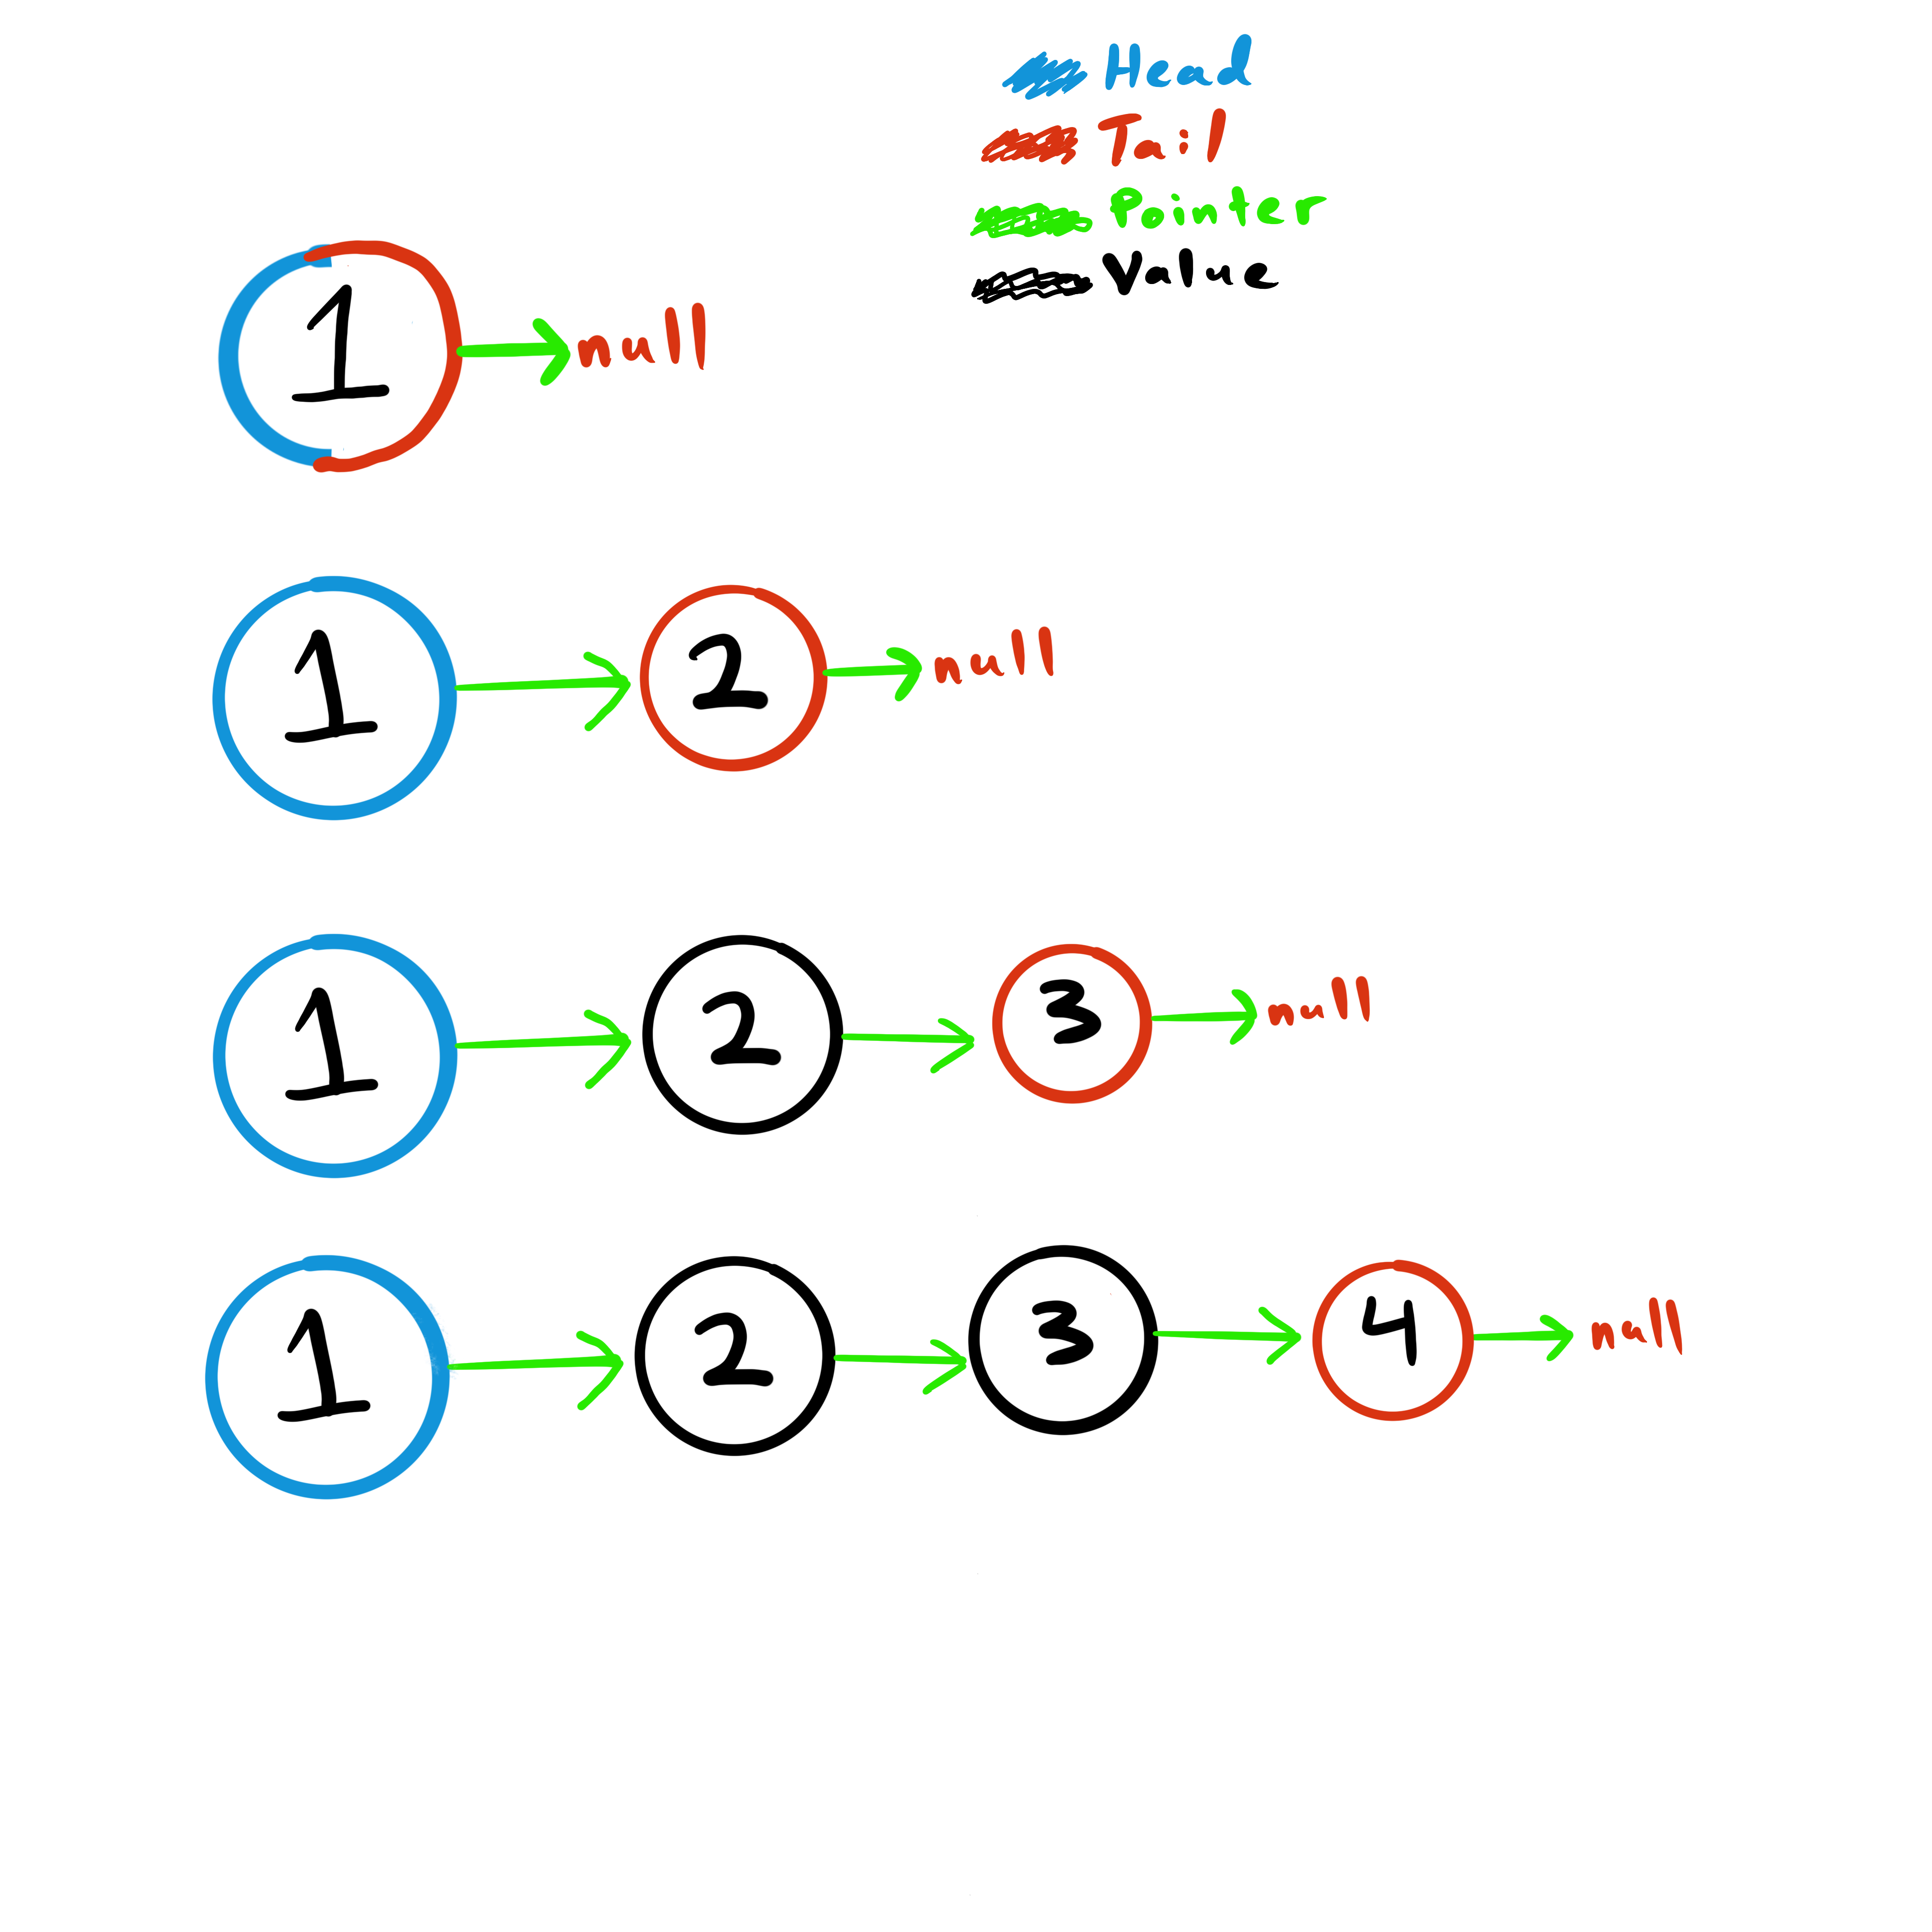 Head
Tail
Pointer
Value
1 null
1 2 null
1 2 3 null
1 2 3 4 null